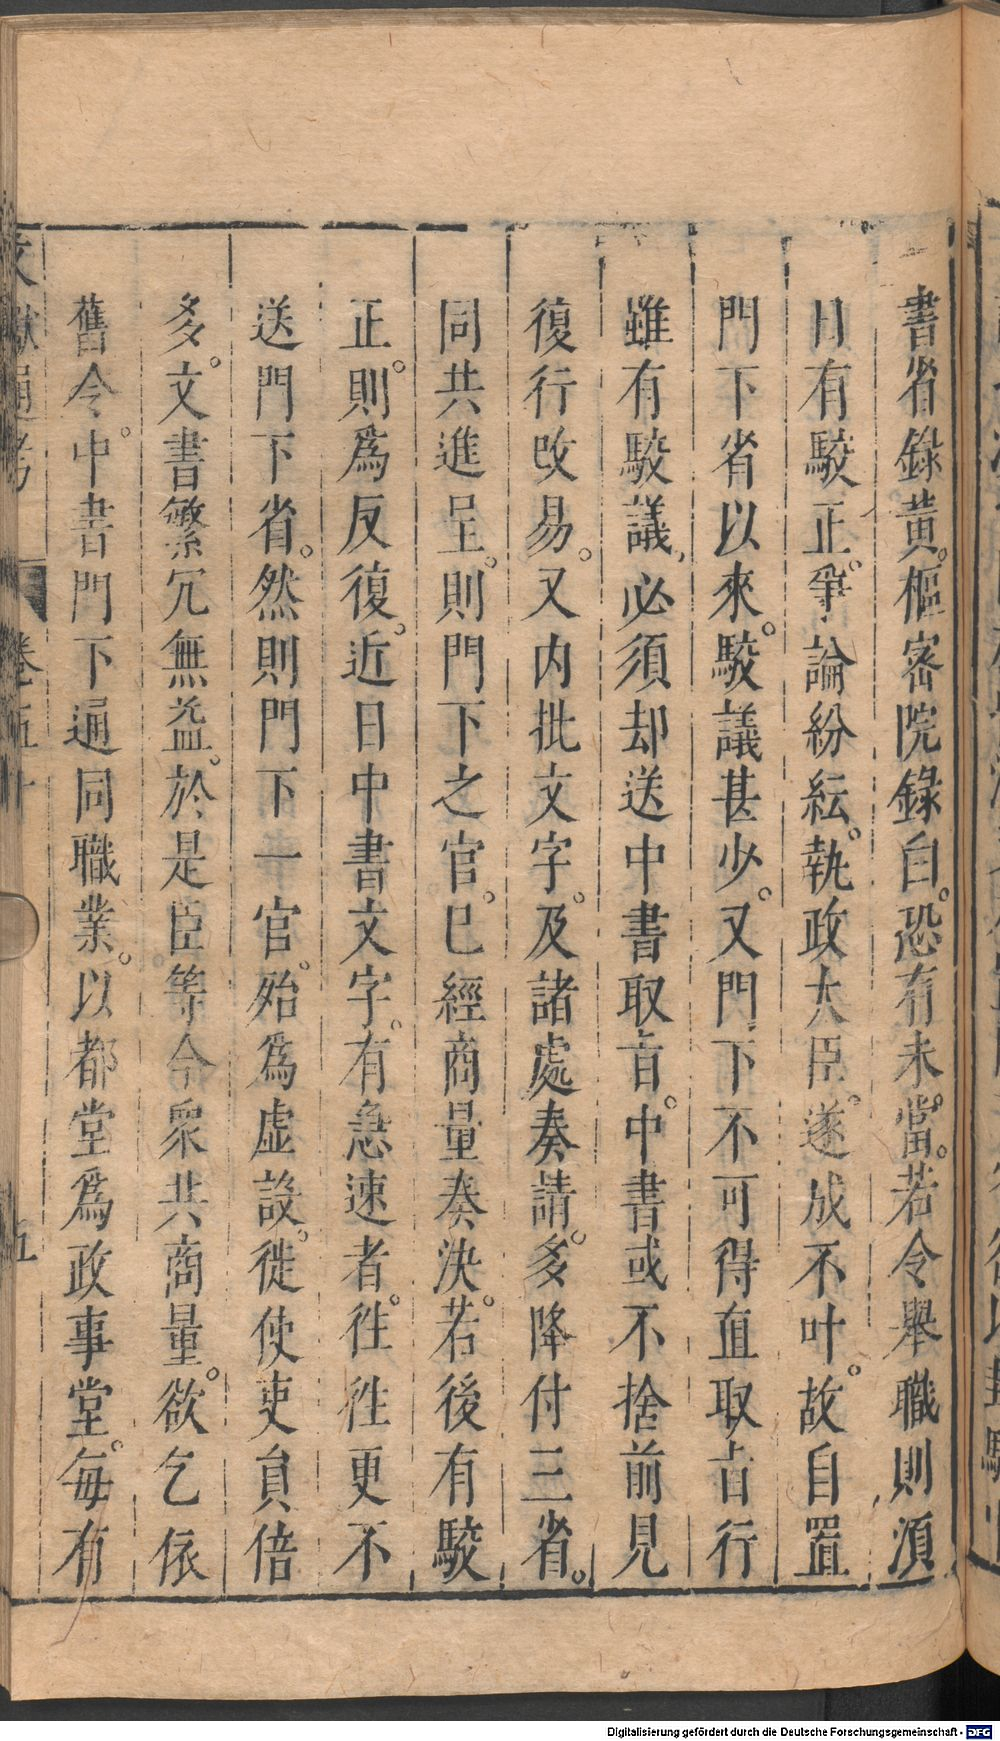 書省錄黃。樞密院錄白。恐有未當。若令舉職則須
日有駮正。爭論紛紜。執政大臣。遂成不叶。故自置
門下省以來。駮議甚少。又門下不可得直取旨行
雖有駮議，必須却送中書取旨。中書或不捨前見
復行改易。又內批文字。及諸處奏請。多降付三省。
同共進呈。則門下之官。已經商量奏決。若後有駮
正。則爲反復。近日中書文字。有急速者。徃徃更不
送門下省。然則門下一官。殆爲虛設。徙使吏員倍
多。文書繁冗無益。於是臣等今衆共商量。欲乞依
舊令。中書門下通同職業。以都堂爲政事堂。每有
文獻通考 卷五十 五
Digitalisierung gefördert durch die Deutsche Forschungsgemeinschaft - DFG